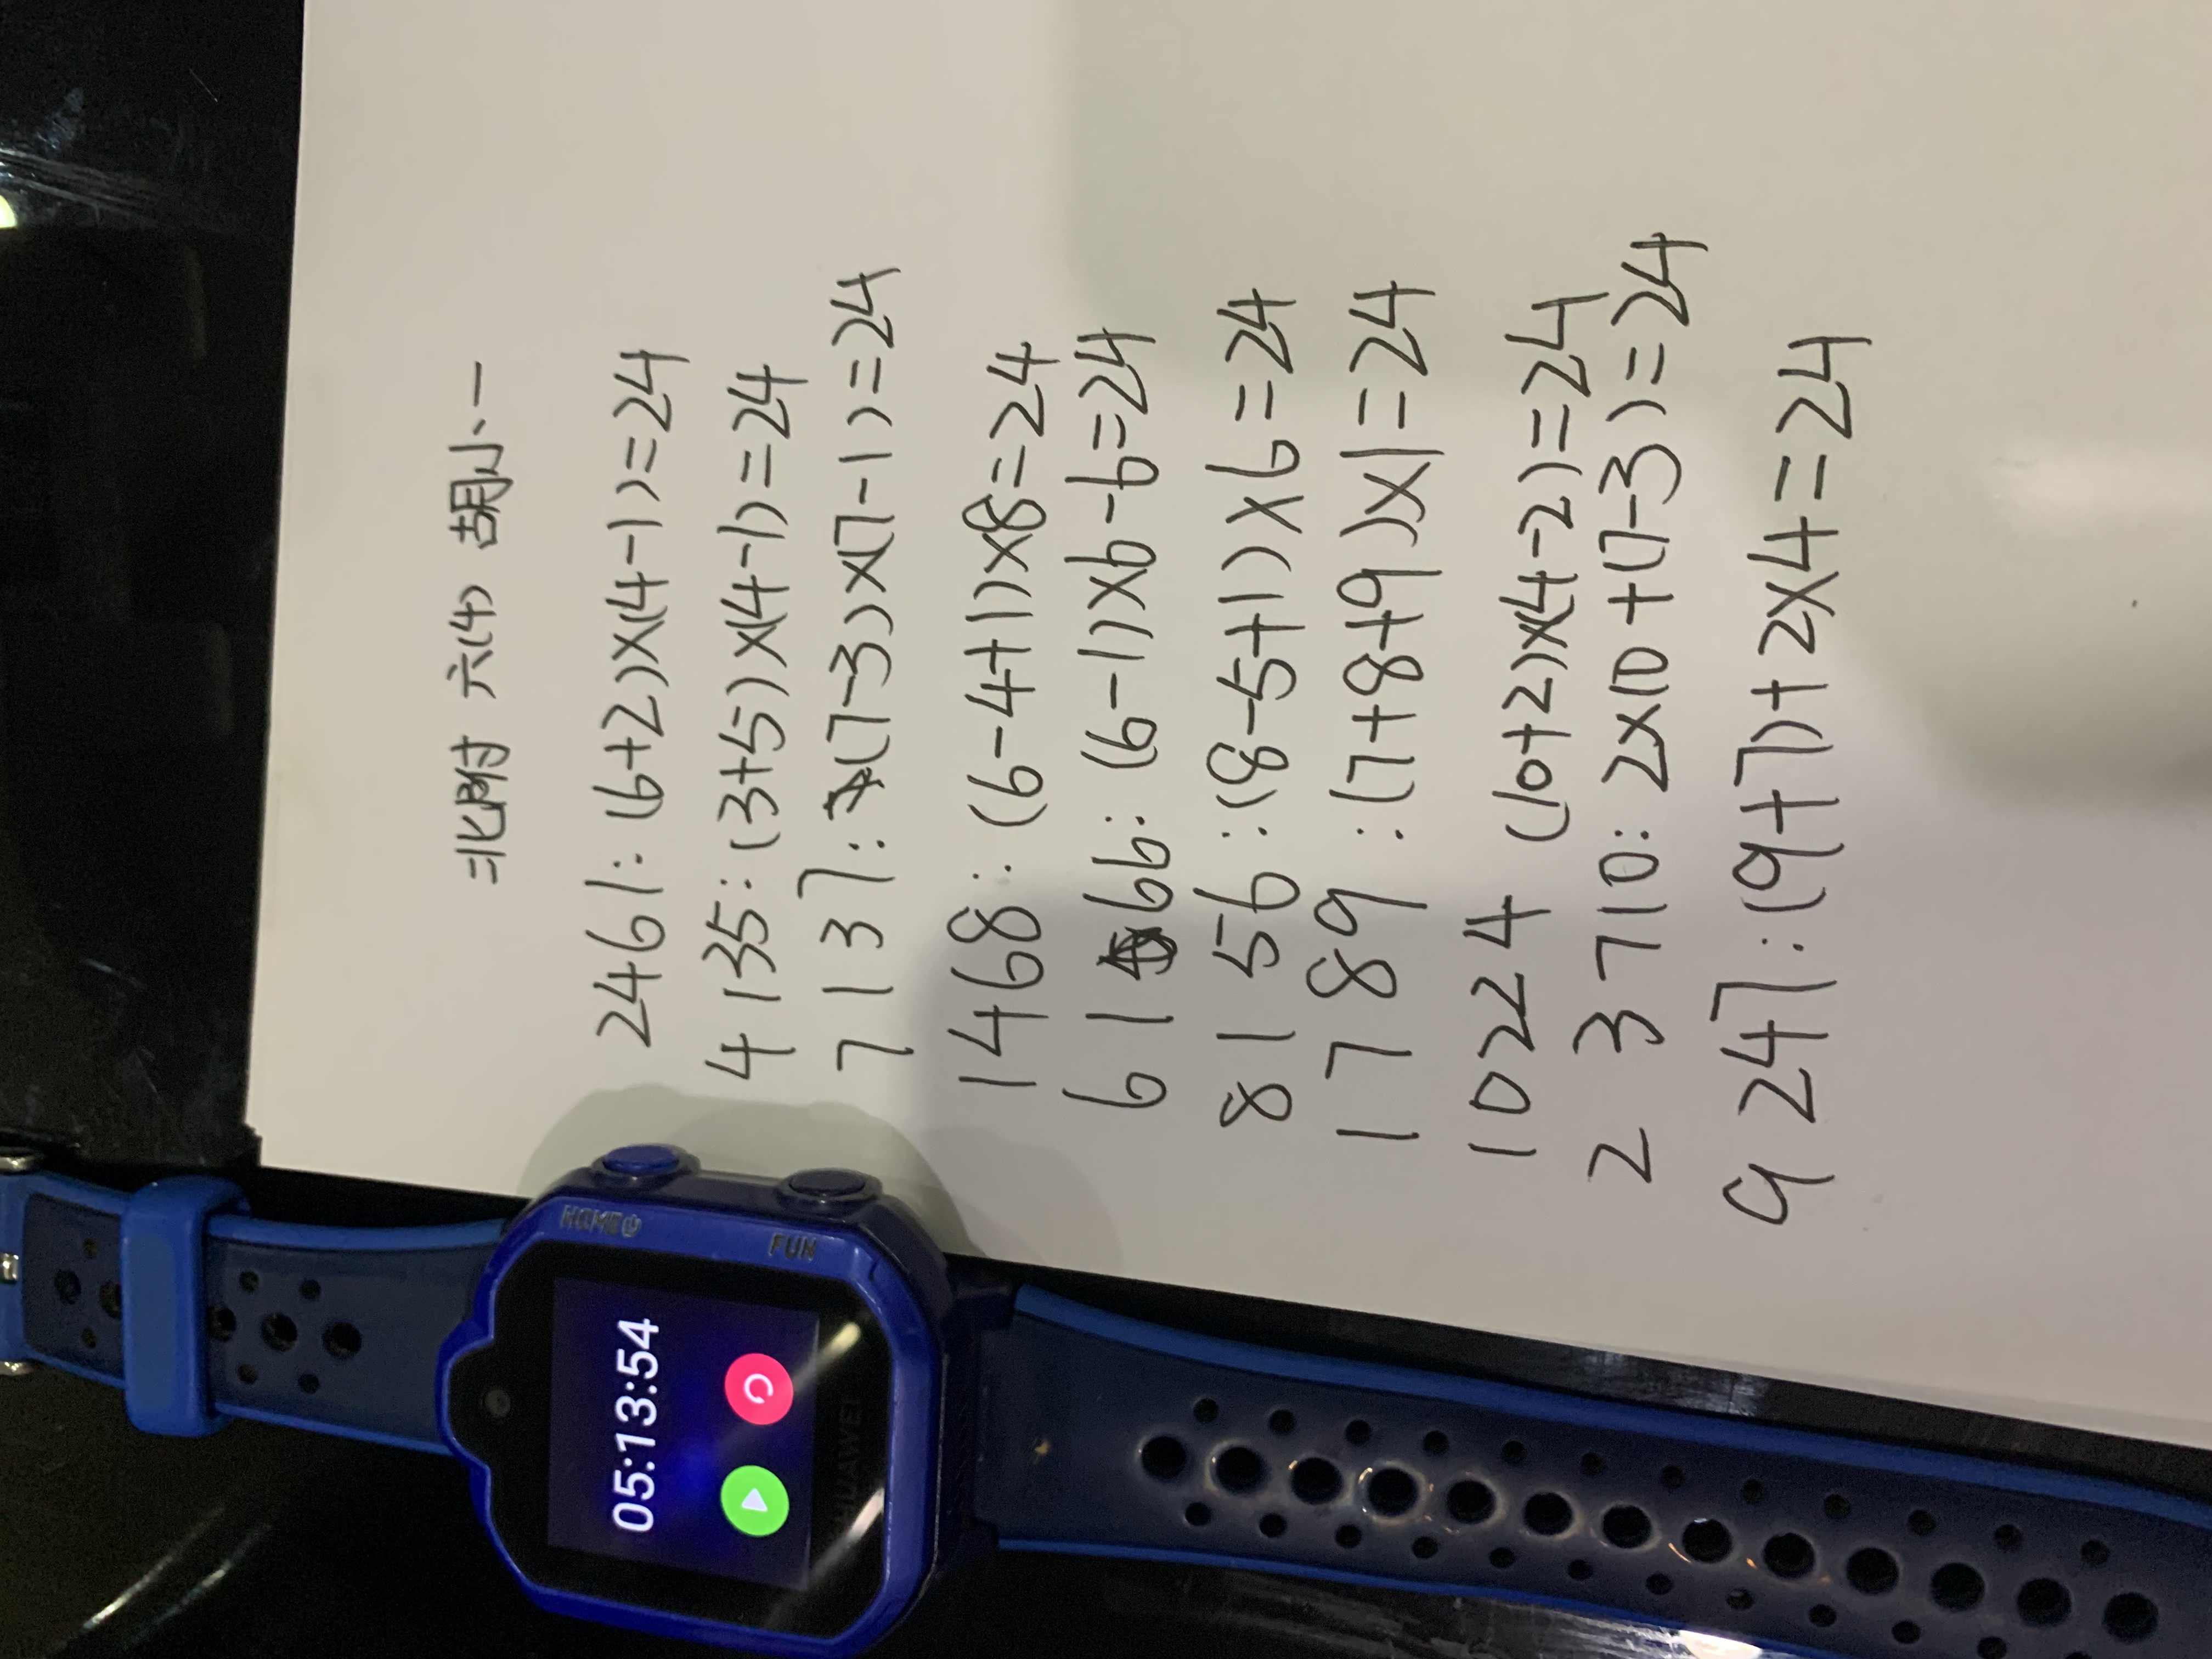 HOME
05:13:54
FUN
HUAWEI
北附 六(4) 胡小一
2461: (6+2)×(4-1)=24
4 135: (3+5)×(4-1)=24
7 1 3 7: (7-3)×(7-1)=24
1468: (6-4+1)×8=24
6 1 66: (6-1)×6-6=24
8 1 56 :(8-5+1)×6=24
1 7 89 :(7+8+9)×1=24
10224 (10+2)×(4-2)=24
2 3 710: 2×10+(7-3)=24
9 247:(9+7)+2×4=24